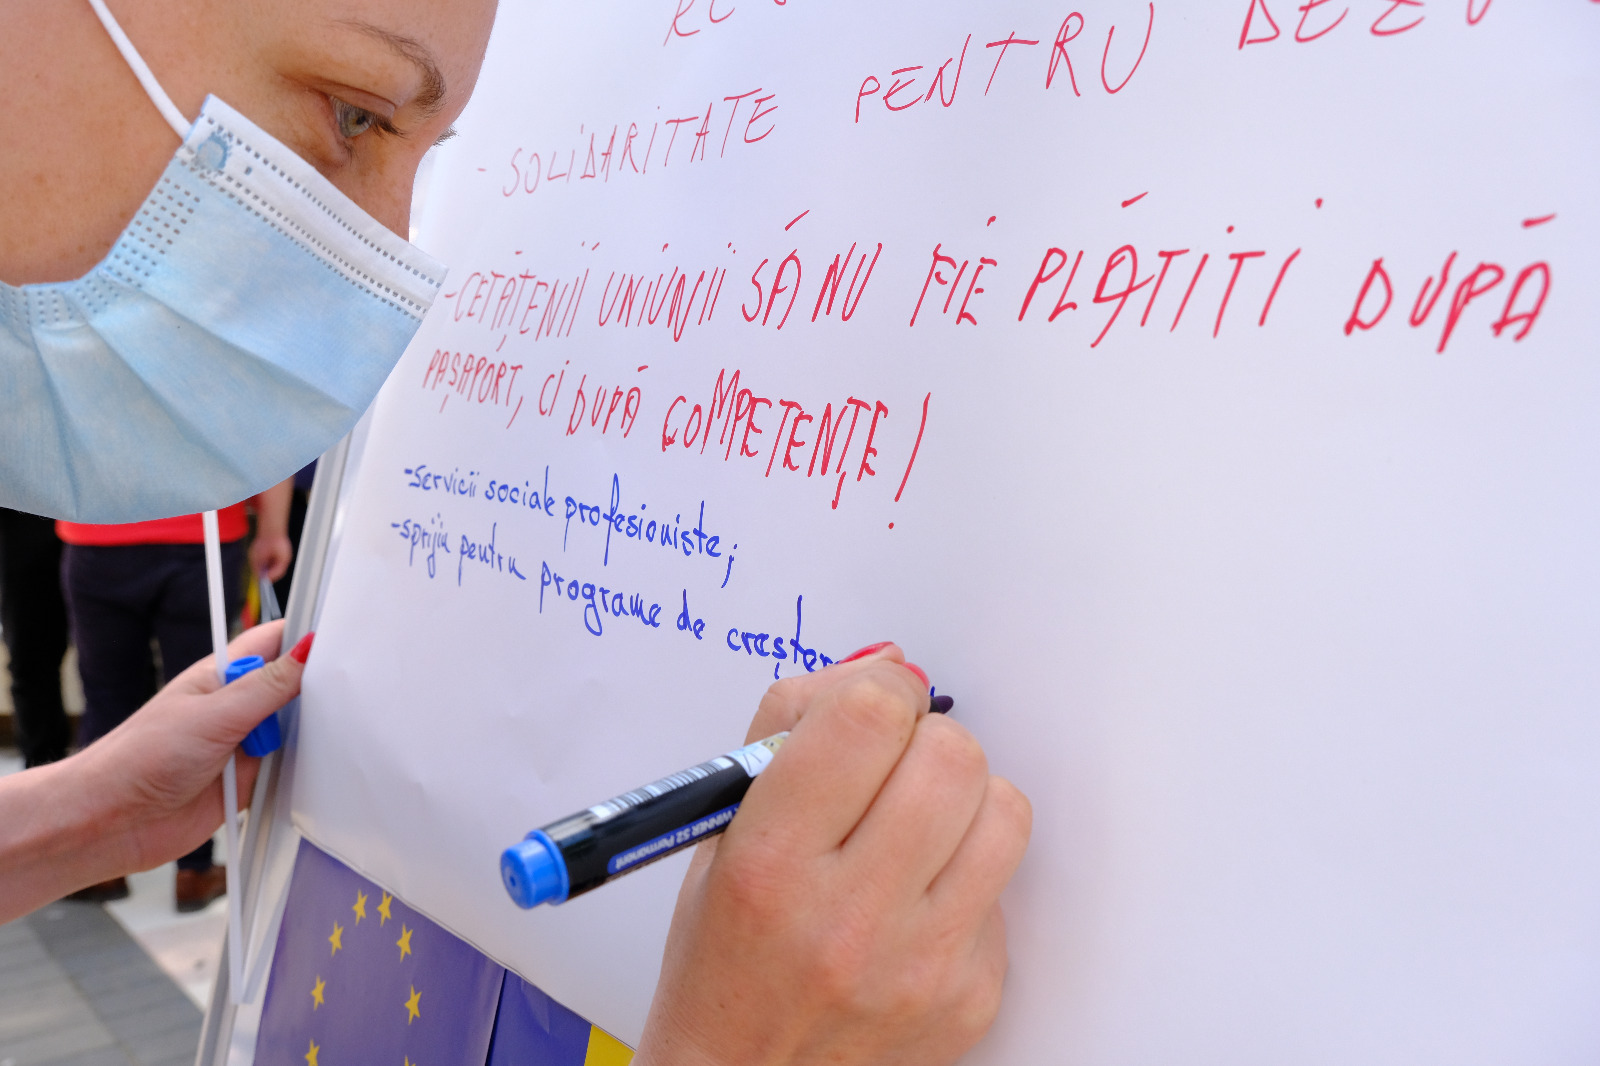 - SOLIDARITATE PENTRU
- CETĂȚENII UNIUNII SĂ NU FIE PLĂTIȚI DUPĂ
PAȘAPORT, CI DUPĂ COMPETENȚE!
- servicii sociale profesioniste;
- sprijin pentru programe de creștere
WINNER 52 Permanent